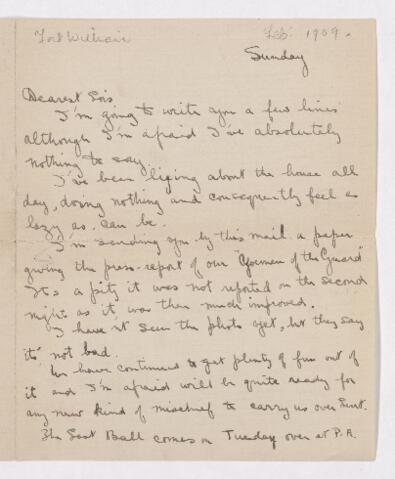 Fort William
Feb: 1909.
Sunday
Dearest Lois
I'm going to write you a few lines
although I'm afraid I've absolutely
nothing to say.
I've been lying about the house all
day, doing nothing and consequently feel as
lazy as can be.
I'm sending you by this mail a paper
giving the press-report of our "Yeomen of the Guard"
It's a pity it was not reported on the second
night as it was then much improved.
I haven't seen the photo yet, but they say
it's not bad.
We have continued to get plenty of fun out of
it and I'm afraid will be quite ready for
any new kind of mischief to carry us over Lent.
The Last Ball comes on Tuesday over at P.A.